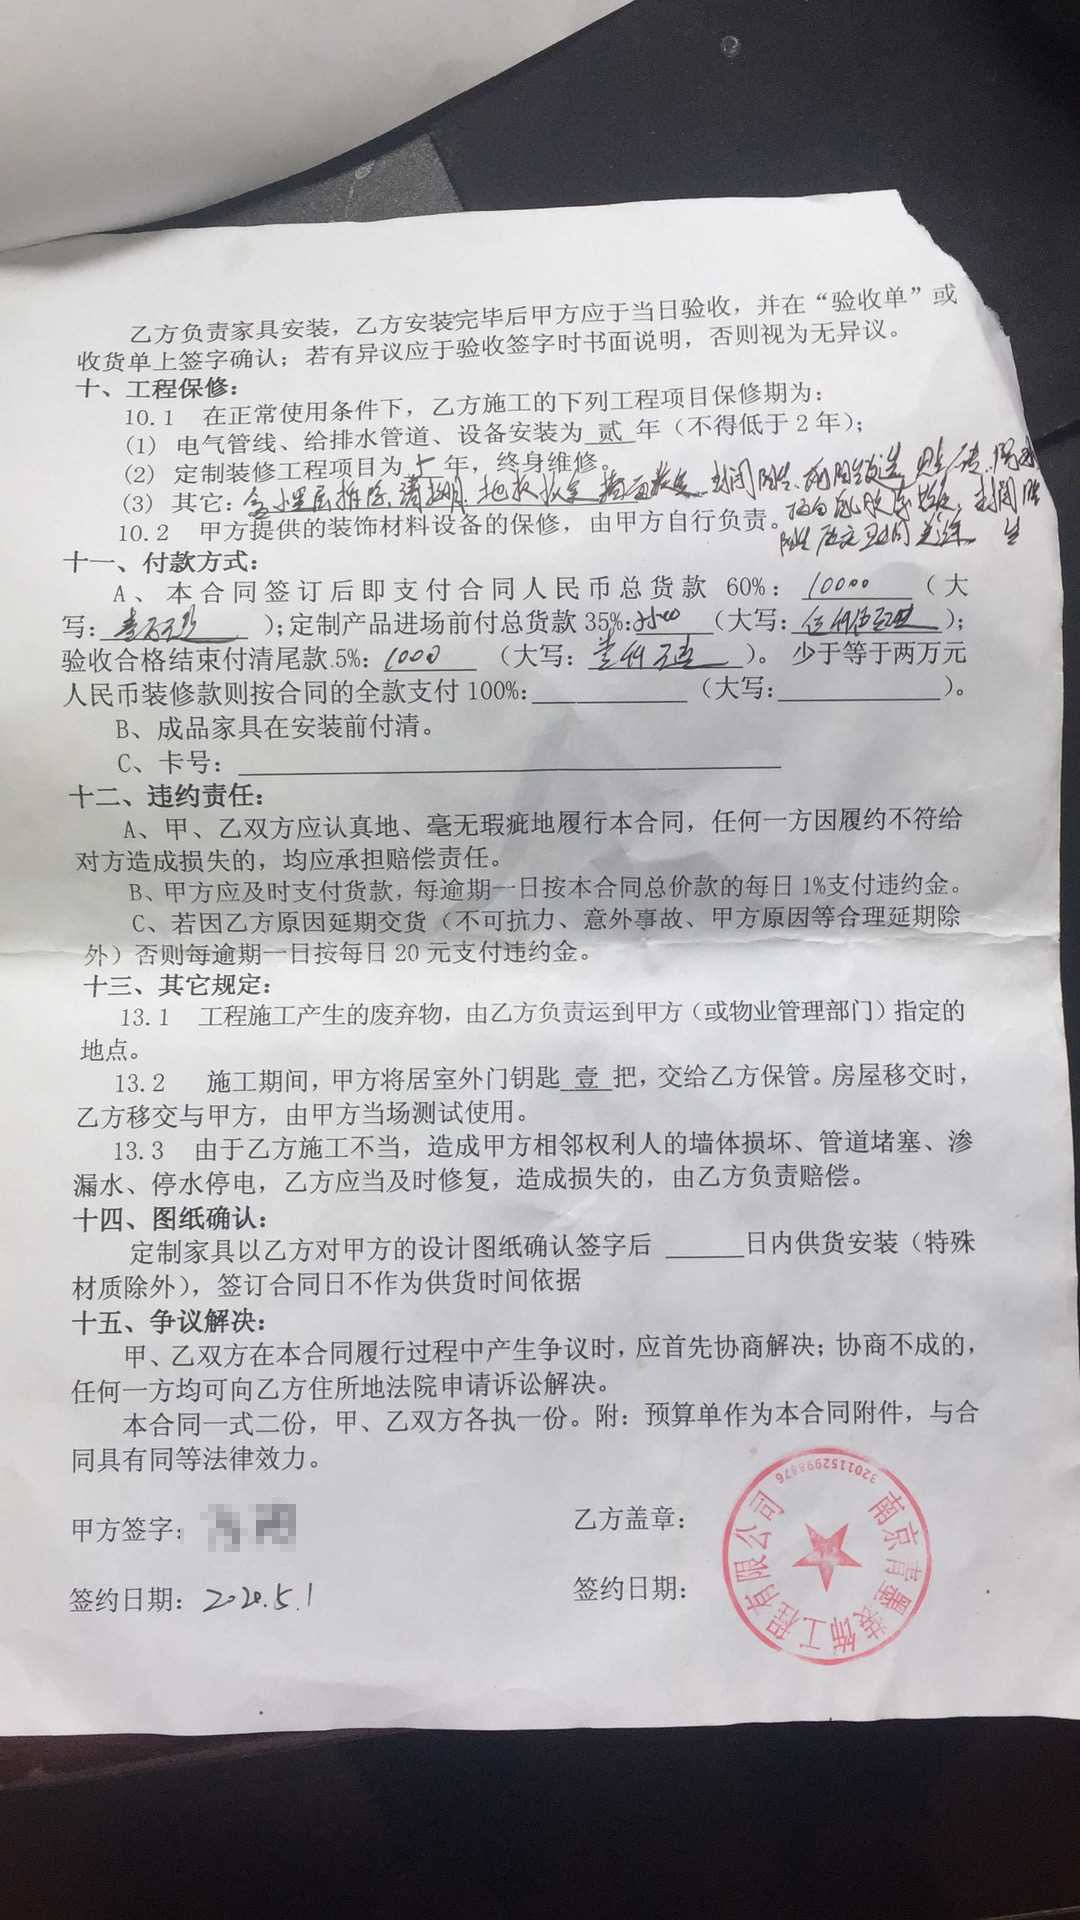 乙方负责家具安装，乙方安装完毕后甲方应于当日验收，并在“验收单”或
收货单上签字确认；若有异议应于验收签字时书面说明，否则视为无异议。
十、工程保修：
10.1 在正常使用条件下，乙方施工的下列工程项目保修期为：
(1) 电气管线、给排水管道、设备安装为 贰 年（不得低于2年）；
(2) 定制装修工程项目为 5 年，终身维修。
(3) 其它：
10.2 甲方提供的装饰材料设备的保修，由甲方自行负责。
十一、付款方式：
A、本合同签订后即支付合同人民币总货款 60%： 10000 （大
写： ）；定制产品进场前付总货款35%: （大写： ）；
验收合格结束付清尾款.5%： 1000 （大写： ）。 少于等于两万元
人民币装修款则按合同的全款支付100%：____（大写：____）。
B、成品家具在安装前付清。
C、卡号：____
十二、违约责任：
A、甲、乙双方应认真地、毫无瑕疵地履行本合同，任何一方因履约不符给
对方造成损失的，均应承担赔偿责任。
B、甲方应及时支付货款，每逾期一日按本合同总价款的每日1%支付违约金。
C、若因乙方原因延期交货（不可抗力、意外事故、甲方原因等合理延期除
外）否则每逾期一日按每日20元支付违约金。
十三、其它规定：
13.1 工程施工产生的废弃物，由乙方负责运到甲方（或物业管理部门）指定的
地点。
13.2 施工期间，甲方将居室外门钥匙 壹 把，交给乙方保管。房屋移交时，
乙方移交与甲方，由甲方当场测试使用。
13.3 由于乙方施工不当，造成甲方相邻权利人的墙体损坏、管道堵塞、渗
漏水、停水停电，乙方应当及时修复，造成损失的，由乙方负责赔偿。
十四、图纸确认：
定制家具以乙方对甲方的设计图纸确认签字后 ____日内供货安装（特殊
材质除外），签订合同日不作为供货时间依据
十五、争议解决：
甲、乙双方在本合同履行过程中产生争议时，应首先协商解决；协商不成的，
任何一方均可向乙方住所地法院申请诉讼解决。
本合同一式二份，甲、乙双方各执一份。附：预算单作为本合同附件，与合
同具有同等法律效力。
甲方签字：
乙方盖章：
签约日期：2020.5.1
签约日期：
南京青墨装饰工程有限公司
3201152998876